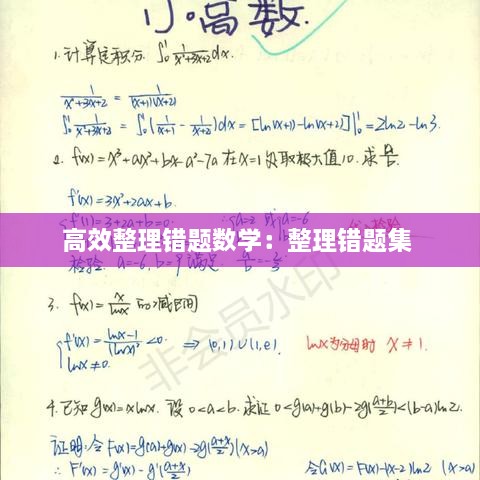 小高数
1.计算定积分 ∫₀¹ 1/(x²+3x+2) dx.
1/(x²+3x+2) = 1/((x+1)(x+2))
∫₀¹ 1/(x²+3x+2) = ∫₀¹ (1/(x+1) - 1/(x+2))dx = [ln(x+1)-ln(x+2)]|₀¹ = 2ln2-ln3.
2. f(x)=x³+ax²+bx-a²-7a 在x=1处取极大值10. 求a/b
f'(x)=3x²+2ax+b.
f'(1)=3+2a+b=0
高效整理错题数学：整理错题集
检验 a=-6, b=9 满足 a/b=-2/3
3. f(x)=x/lnx 的减区间
{f'(x)=(lnx-1)/(lnx)²<0. ⇒ (0,1)∪(1,e). lnx为分母时 x≠1.
lnx≠0.
非会员水印
4.已知g(x)=xlnx. 设0<a<b. 求证 0<g(a)+g(b)-2g((a+b)/2)<(b-a)ln2.
证明:令F(x)=g(a)+g(x)-2g((a+x)/2)(x>a)
∴ F'(x)=g'(x)-g'((a+x)/2) 令G(x)=F(x)-(x-2)ln2 (x>a)